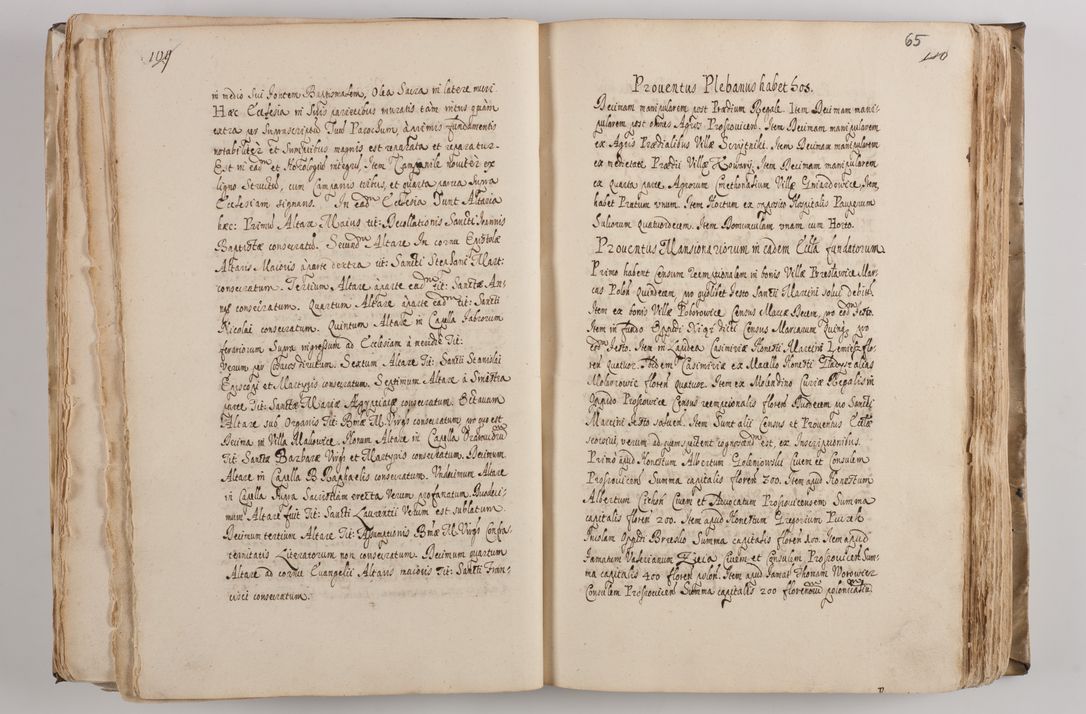 109
in medio sui Fontem Baptismalem, Olea Sacra in latere muri.
Hæc Ecclesia in suis parietibus muratis tàm intus quàm
extra per suprascriptũ Dnũ Parochum à primis fundamentis
notabiliter et sumptibus magnis est renovata et reparatur.
Est in eadm et Horologiũ integrũ, Item Campanile noviter ex
ligno structũ, cum Campanis tribus, et quarta parva supra
Ecclesiam signans. In eadm Ecclesia sunt Altaria
hæc: Primũ Altare Maius tit: Decollationis Sancti Joannis
Baptistæ consecratũ. Secundũ Altare In cornu Epistolæ
Altaris Maioris à parte dextra tit: Sancti Stephani Mart:
consecratum. Tertium Altare à parte eadm tit: Sanctæ An-
næ consecratum. Quartum Altare à parte eadm tit: Sancti
Nicolai consecratum. Quintum Altare in Capella Fabrorum
ferrariorum supra ingressum ad Ecclesiam à meridie Tit:
Verum per
Sextum Altare Tit: Sancti Stanislai
Episcopi et Martyris consecratum. Septimum Altare à Sinistra
parte Tit: Sanctæ Mariæ Ægyptiacæ consecratum. Octavum
Altare sub Organis Tit: Bmæ M. Virgis consecratum, pro quo est
Decima in Villa Makovice. Nonum Altare in Capella
Tit: Sanctæ Barbaræ Virgis et Martyris consecratum. Decimum
Altare in Capella B. Raphaelis consecratum. Undecimum Altare
in Capella supra Sacristiam erecta, Verum profanatum. Duodeci-
mum Altare fuit Tit: Sancti Laurentii Verum est sublatum.
Decimum tertium Altare Tit: Assumptionis Bmæ M. Virgis Confra-
ternitatis Literatorum non consecratum. Decimum quartum
Altare ad cornu Evangelii Altaris maioris Tit: Sancti Fran-
cisci consecratum.
65
110
Proventus Plebanus habet hos.
Decimam manipularem post Prædium Regale. Item Decimam mani-
pularem post omnes Agros Prossovicen. Item Decimam manipularem
ex Agris Prædialibus Villæ Sczytniki. Item Decimam manipularem
ex medietate Prædii Villæ Kowary. Item Decimam manipularem
ex quarta parte Agrorum Cmethonalium Villæ Gniazdowice, Item
habet Pratum unum. Item Hortum ex opposito Hospitalis Pauperum
Sulcorum quatuordecem. Item Domunculam unam cum Horto.
Proventus Mansionariorum in eadem Eccla fundatorum
Primo habent Censum reemptionalem in bonis Villæ Przesławice Mar-
cas Polon Quindecem, pro quolibet Festo Sancti Martini solvi debitũ.
Item ex bonis Villæ Poborowice Census Marcæ Decem, pro eodm Festo.
Item in fundo Oppidi dicti Census Marcarum pro
eodm Festo. Item in Lapidea Casimiriæ Honesti Martini Lemiesz flo-
ren quatuor. Ibidem Casimiriæ ex Macello Honesti Gladysz alias
floren quatuor. Item ex Molendino Curiæ Regalis in
Oppido Prossovice Census reemptionalis floren Undecem pro Sancti
Martini Festo solvens. Item sunt alii Census et Proventus Ecclæ
verum ad quem spectent cognoscendũ est, ex Inscriptionibus.
Primo apud Honestum Albertum Goleniowski Civem et Consulem
Prossovicen Summa capitalis floren 300. Item apud Honestum
Albertum Cichoń Civem et Advocatum Prossovicensem Summa
capitalis floren 200. Item apud Honestum Gregorium
Incolam Oppidi Brzesko Summa capitalis floren 100. Item apud
Famatum Valerianum Zięcia Civem et Consulem Prossovicen Sum-
ma capitalis 400 floren polon. Item apud Famat Thomam Worowicz
Consulem Prossovicen Summa capitalis 200 florenorũ polonicaliũ.